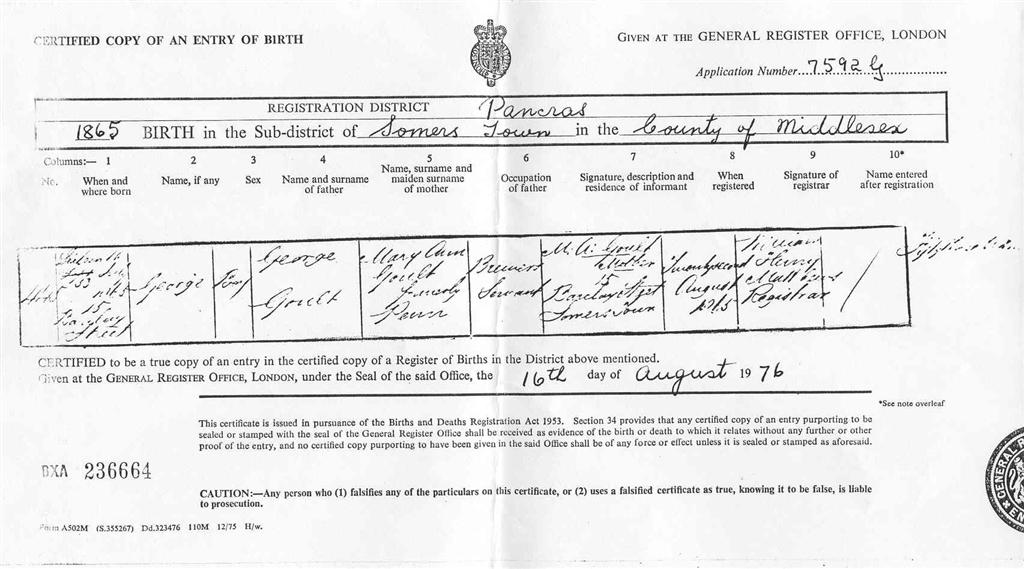 CERTIFIED COPY OF AN ENTRY OF BIRTH
GIVEN AT THE GENERAL REGISTER OFFICE, LONDON
Application Number 7592G
REGISTRATION DISTRICT Pancras
1865 BIRTH in the Sub-district of Somers Town in the County of Middlesex
Columns:— 1 2 3 4 5 6 7 8 9 10*
No. When and where born
Name, if any
Sex
Name and surname of father
Name, surname and maiden surname of mother
Occupation of father
Signature, description and residence of informant
When registered
Signature of registrar
Name entered after registration
15
Street
George
Boy
George
Goult
Mary Ann
Goult
formerly
Brewers
Servant
M. A. Goult
Mother
15
Somers Town
Twenty second
August
William
Henry
Matthews
Registrar
CERTIFIED to be a true copy of an entry in the certified copy of a Register of Births in the District above mentioned.
Given at the GENERAL REGISTER OFFICE, LONDON, under the Seal of the said Office, the 16th day of August 1976
*See note overleaf
This certificate is issued in pursuance of the Births and Deaths Registration Act 1953. Section 34 provides that any certified copy of an entry purporting to be
sealed or stamped with the seal of the General Register Office shall be received as evidence of the birth or death to which it relates without any further or other
proof of the entry, and no certified copy purporting to have been given in the said Office shall be of any force or effect unless it is sealed or stamped as aforesaid.
BXA 236664
CAUTION:—Any person who (1) falsifies any of the particulars on this certificate, or (2) uses a falsified certificate as true, knowing it to be false, is liable
to prosecution.
Form A502M (S.355267) Dd.323476 110M 12/75 H/w.
GENERAL